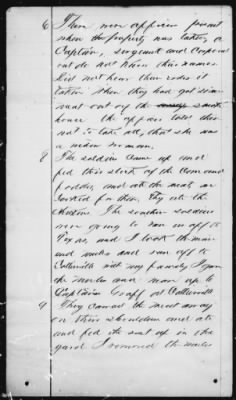 6 There were officers present
when the property was taken, a
Captain, sergeant and Corporal
but do not know their names.
Did not hear them order it
taken. When they had got some
meat out of the smoke
house the officer told them
not to take all, that she was
a widow woman.
8 The soldiers came up and
fed their stock of the corn and
fodder, and ate the meat, we
cooked for them. They ate the
chickens. The southern soldiers
were going to run us off to
Texas, and I took the mare
and mules and ran off to
with my family, I gave
the mules and mare up to
Captain at
9 They carried the meat away
on their shoulders and ate
and fed the rest up in the
yard I removed the mules